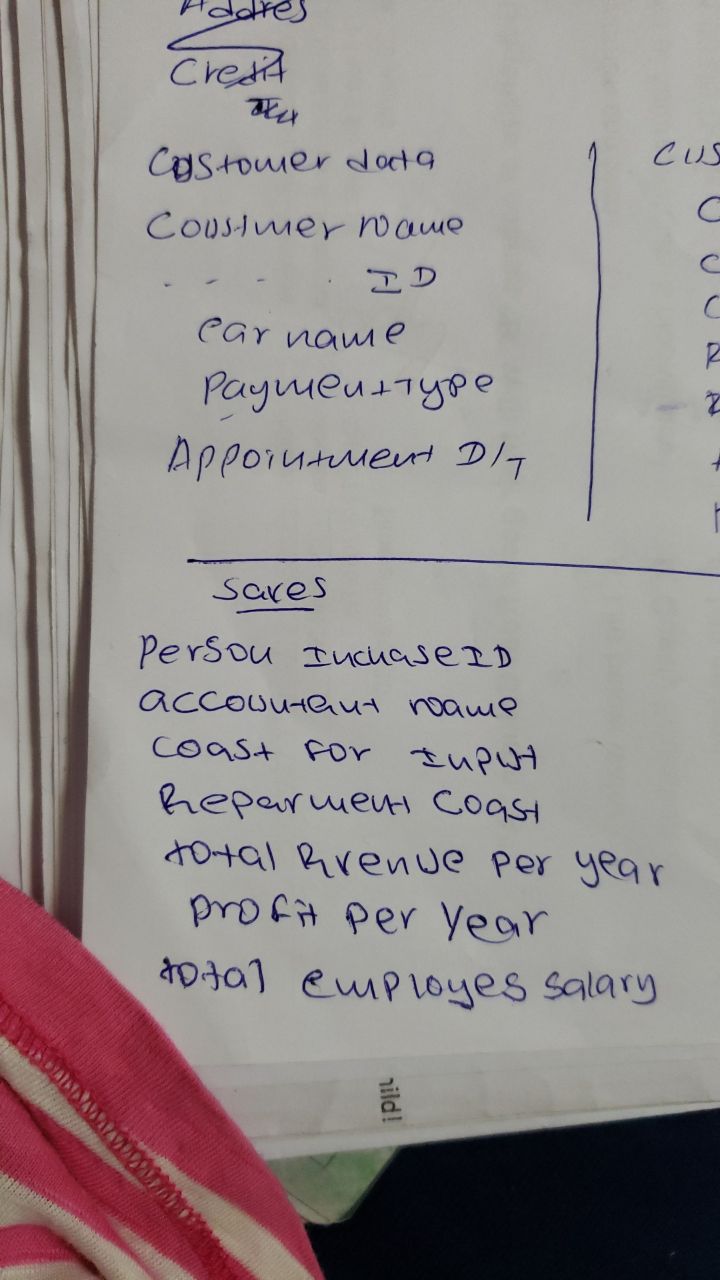 Addres
Credit
Customer data
Coustmer name
- - - . ID
car name
Payment type
Appointment D/T
Sares
Person InchaseID
accountant name
coast for Input
Reparment Coast
total Rrenue per year
profit per year
total employes salary
CUS
C
C
C
R